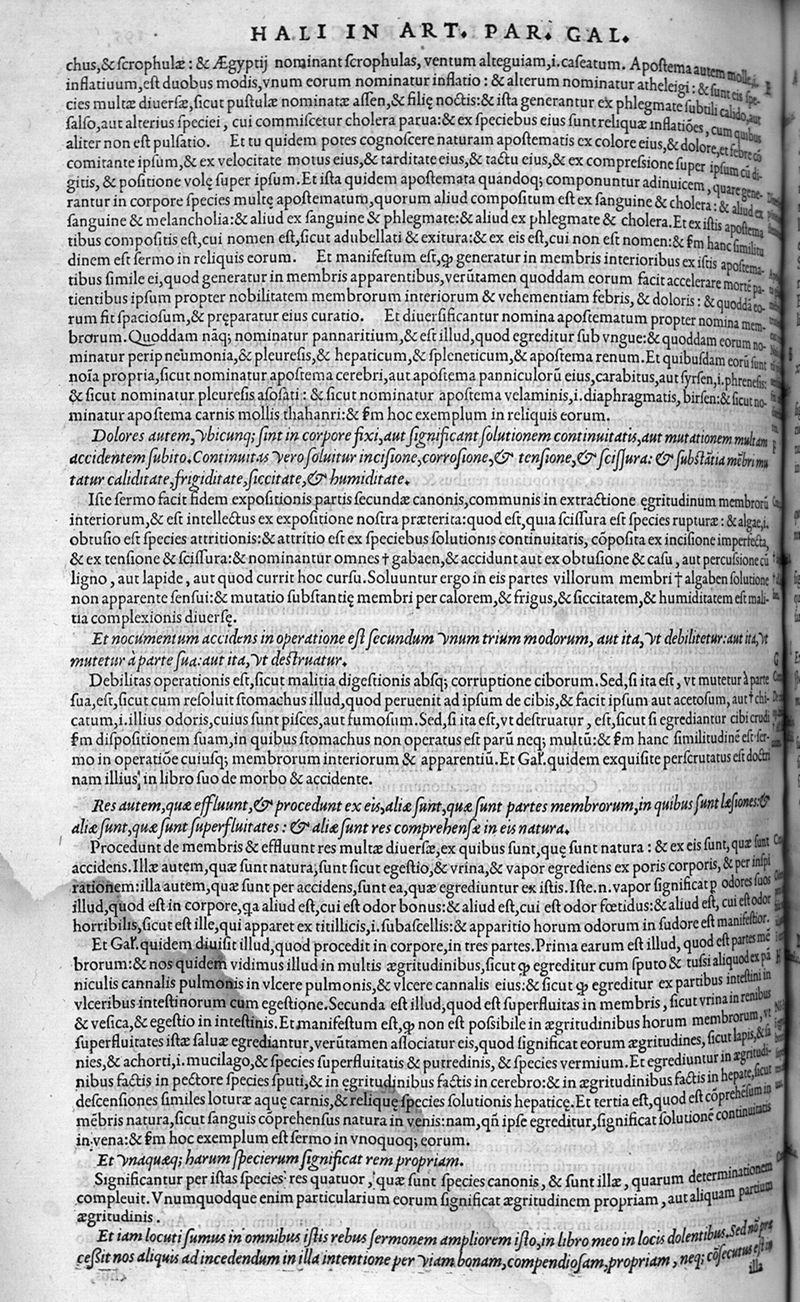 HALI IN ART. PAR. GAL.
chus,& scrophulæ: & Ægyptij nominant scrophulas, ventum alteguiam,i.caseatum. Apostema autem molle,
inflatiuum,est duobus modis,vnum eorum nominatur inflatio: & alterum nominatur atheleigi: & sunt eis spe-
cies multæ diuersæ,sicut pustulæ nominatæ assen,& filię noctis:& ista generantur ex phlegmate subtili calido,aut
salso,aut alterius speciei, cui commiscetur cholera parua:& ex speciebus eius sunt reliquæ inflatiões, cum quibus
aliter non est pulsatio. Et tu quidem potes cognoscere naturam apostematis ex colore eius,& dolore,et febre cō
comitante ipsum,& ex velocitate motus eius,& tarditate eius,& tactu eius,& ex compressione super ipsum cū di-
gitis, & positione volę super ipsum. Et ista quidem apostemata quandoq; componuntur adinuicem, quare gene-
rantur in corpore species multę apostematum,quorum aliud compositum est ex sanguine & cholera: & aliud ex
sanguine & melancholia:& aliud ex sanguine & phlegmate:& aliud ex phlegmate & cholera.Et ex istis apostema
tibus compositis est,cui nomen est,sicut adubellati & exitura:& ex eis est,cui non est nomen:& ſm hanc similitu
dinem est sermo in reliquis eorum. Et manifestum est,ꝙ generatur in membris interioribus ex istis apostema-
tibus simile ei,quod generatur in membris apparentibus,verūtamen quoddam eorum facit accelerare mortē pa-
tientibus ipsum propter nobilitatem membrorum interiorum & vehementiam febris, & doloris: & quoddā eo-
rum fit spaciosum,& pręparatur eius curatio. Et diuersificantur nomina apostematum propter nomina mem-
brorum.Quoddam nāq; nominatur pannaritium,& est illud,quod egreditur sub vngue:& quoddam eorum no-
minatur peripneumonia,& pleuresis,& hepaticum,& spleneticum,& apostema renum.Et quibusdam eorū sunt
noīa propria,sicut nominatur apostema cerebri,aut apostema panniculorū eius,carabitus,aut syrsen,i.phrenesis:
& sicut nominatur pleuresis asosati: & sicut nominatur apostema velaminis,i.diaphragmatis,birsen:& sicut no-
minatur apostema carnis mollis thahanri:& ſm hoc exemplum in reliquis eorum.
Dolores autem,vbicunq; sint in corpore fixi,aut significant solutionem continuitatis,aut mutationem multam
accidentem subito.Continuitas vero soluitur incisione,corrosione,& tensione,& scissura: & substātia mēbri mu
tatur caliditate,frigiditate,siccitate,& humiditate.
Iste sermo facit fidem expositionis partis secundæ canonis,communis in extractione ęgritudinum membrorū
interiorum,& est intellectus ex expositione nostra præterita:quod est,quia scissura est species rupturæ: & algae,i.
obtusio est species attritionis:& attritio est ex speciebus solutionis continuitatis, cōposita ex incisione imperfecta,
& ex tensione & scissura:& nominantur omnes † gabaen,& accidunt aut ex obtusione & casu, aut percussione cū
ligno, aut lapide, aut quod currit hoc cursu.Soluuntur ergo in eis partes villorum membri † algaben solutione
non apparente sensui:& mutatio substantię membri per calorem,& frigus,& siccitatem,& humiditatem est mali-
tia complexionis diuersę.
Et nocumentum accidens in operatione est secundum vnum trium modorum, aut ita,vt debilitetur:aut ita,vt
mutetur à parte sua:aut ita,vt destruatur.
Debilitas operationis est,sicut malitia digestionis absq; corruptione ciborum.Sed,si ita est, vt mutetur à parte
sua,est,sicut cum resoluit stomachus illud,quod peruenit ad ipsum de cibis,& facit ipsum aut acetosum, aut † chi-
catum,i.illius odoris,cuius sunt pisces,aut fumosum.Sed,si ita est,vt destruatur, est,sicut si egrediantur cibi crudi
ſm dispositionem suam,in quibus stomachus non operatus est parū neq; multū:& ſm hanc similitudinē est ser-
mo in operatiōe cuiusq; membrorum interiorum & apparentiū.Et Gal̃.quidem exquisite perscrutatus est doctri
nam illius, in libro suo de morbo & accidente.
Res autem,quæ effluunt,& procedunt ex eis,aliæ sunt,quæ sunt partes membrorum,in quibus sunt læsiones:&
aliæ sunt,quæ sunt superfluitates: & aliæ sunt res comprehensæ in eis natura.
Procedunt de membris & effluunt res multæ diuersæ,ex quibus sunt,quę sunt natura: & ex eis sunt, quæ sunt
accidens.Illæ autem,quæ sunt natura,sunt sicut egestio,& vrina,& vapor egrediens ex poris corporis,& per inspi
rationem:illa autem,quæ sunt per accidens,sunt ea,quæ egrediuntur ex istis.Iste.n.vapor significat ꝑ odores suos
illud,quod est in corpore,qa aliud est,cui est odor bonus:& aliud est,cui est odor fœtidus:& aliud est, cui est odor
horribilis,sicut est ille,qui apparet ex titillicis,i.subascellis:& apparitio horum odorum in sudore est manifestior.
Et Gal̃.quidem diuisit illud,quod procedit in corpore,in tres partes.Prima earum est illud, quod est partes mē
brorum:& nos quidem vidimus illud in multis ægritudinibus,sicut ꝙ egreditur cum sputo & tussi aliquod ex pā
niculis cannalis pulmonis in vlcere pulmonis,& vlcere cannalis eius:& sicut ꝙ egreditur ex partibus intestini in
vlceribus intestinorum cum egestione.Secunda est illud,quod est superfluitas in membris, sicut vrina in renibus
& vesica,& egestio in intestinis.Et manifestum est,ꝙ non est possibile in ægritudinibus horum membrorum, vt
superfluitates istæ saluæ egrediantur,verūtamen associatur eis,quod significat eorum ægritudines, sicut lapis,& sa
nies,& achorti,i.mucilago,& species superfluitatis & putredinis, & species vermium.Et egrediuntur in ægritudi-
nibus factis in pectore species sputi,& in egritudinibus factis in cerebro:& in ægritudinibus factis in hepate,sicut
descensiones similes loturæ aquę carnis,& reliquę species solutionis hepaticę.Et tertia est,quod est cōprehensum in
mēbris natura,sicut sanguis cōprehensus natura in venis:nam,qñ ipse egreditur,significat solutionē continuitatis
in vena:& ſm hoc exemplum est sermo in vnoquoq; eorum.
Et vnaquæq; harum specierum significat rem propriam.
Significantur per istas species res quatuor, quæ sunt species canonis, & sunt illæ, quarum determinationem
compleuit.Vnumquodque enim particularium eorum significat ægritudinem propriam, aut aliquam partium
ægritudinis.
Et iam locuti sumus in omnibus istis rebus sermonem ampliorem isto,in libro meo in locis dolentibus.Sed nō præ
cessit nos aliquis ad incedendum in illa intentione per viam bonam,compendiosam,propriam, neq; cōsecutus est in
illa